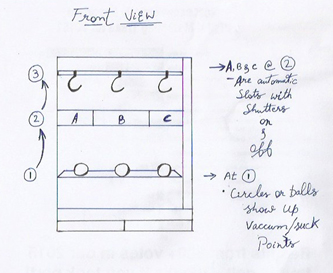 Front VIEW
3
→ A, B & C @ 2
- Are automatic
Slots with
Shutters
on
&
off
2
A B C
1
→ At 1
• Circles or balls
show up
Vaccum/suck
Points